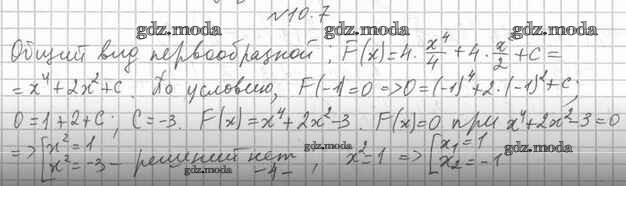 №10.7
gdz.moda gdz.moda gdz.moda
Общий вид первообразной: F(x)=4·x⁴/4+4·x²/2+C=
=x⁴+2x²+C. По условию, F(-1)=0=>0=(-1)⁴+2·(-1)²+C;
gdz.moda gdz.moda gdz.moda
0=1+2+C; C=-3. F(x)=x⁴+2x²-3. F(x)=0 при x⁴+2x²-3=0
=>[x²=1
x²=-3 - решений нет, x²=1 =>[x₁=1
x₂=-1
-4-
gdz.moda gdz.moda gdz.moda